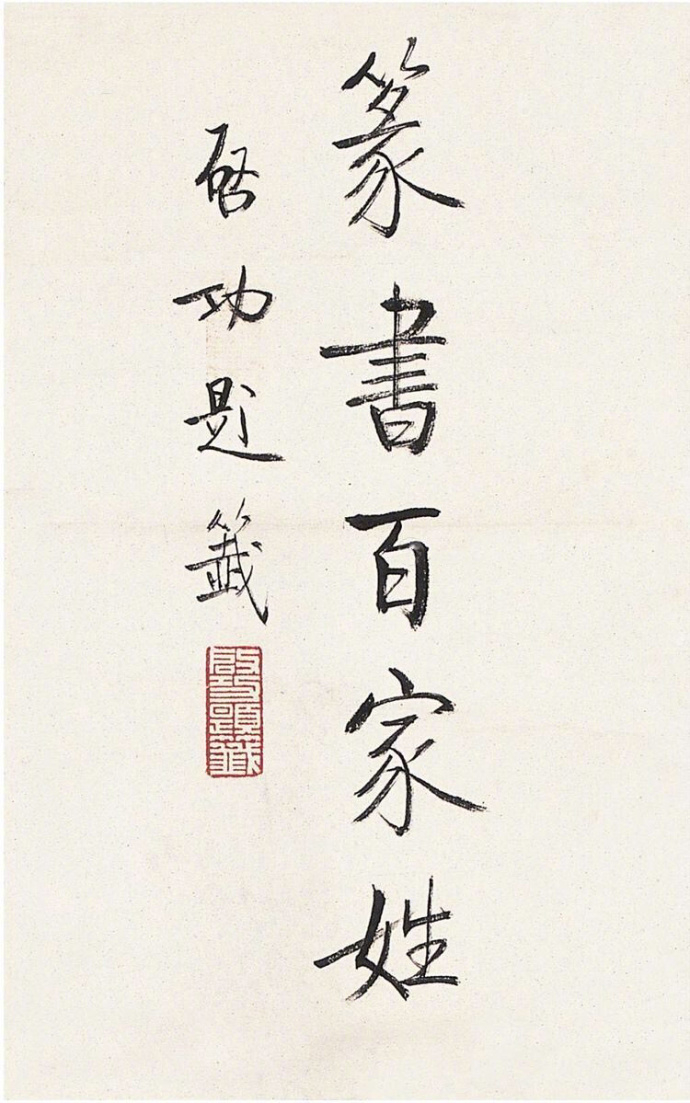 篆書百家姓
啓功題籤
啓功題籤